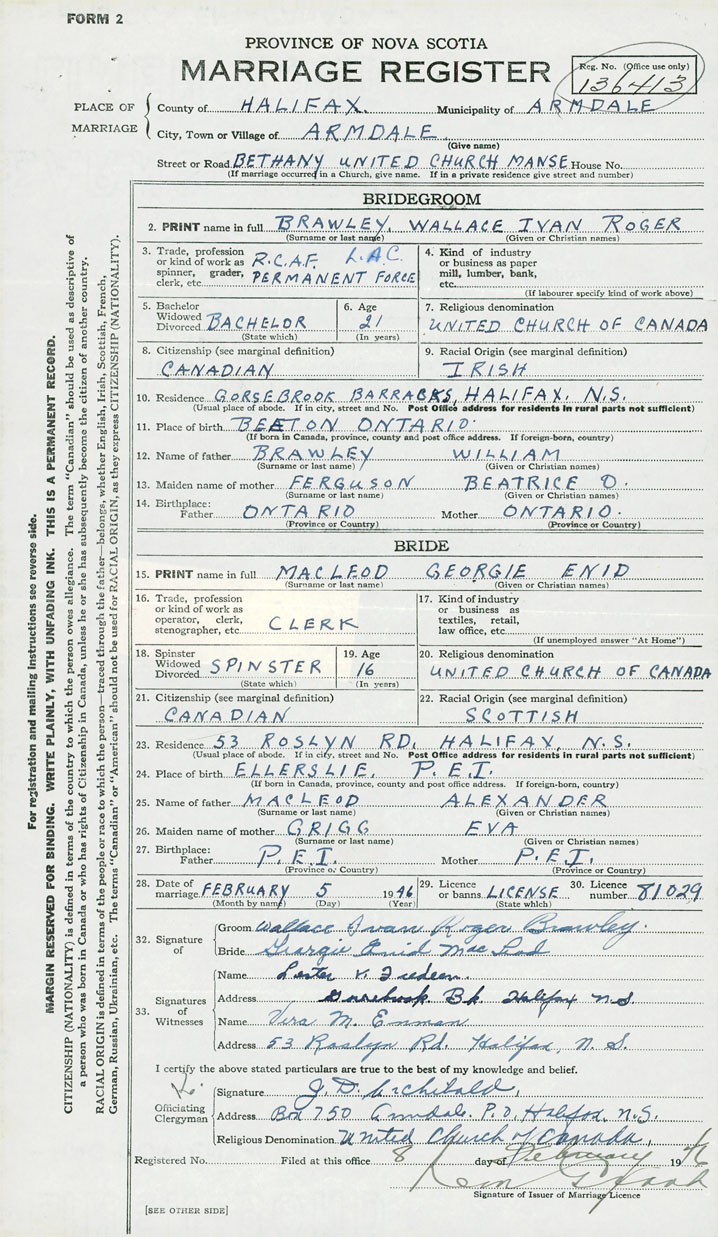 FORM 2
PROVINCE OF NOVA SCOTIA
MARRIAGE REGISTER
Reg. No. (Office use only)
136413
PLACE OF MARRIAGE
County of HALIFAX. Municipality of ARMDALE
City, Town or Village of ARMDALE
(Give name)
Street or Road BETHANY UNITED CHURCH MANSE House No.
(If marriage occurred in a Church, give name. If in a private residence give street and number)
BRIDEGROOM
2. PRINT name in full BRAWLEY, WALLACE IVAN ROGER
(Surname or last name) (Given or Christian names)
3. Trade, profession or kind of work as spinner, grader, clerk, etc. R.C.A.F. L.A.C. PERMANENT FORCE
4. Kind of industry or business as paper mill, lumber, bank, etc.
(If labourer specify kind of work above)
5. Bachelor Widowed Divorced BACHELOR
(State which)
6. Age 21
(In years)
7. Religious denomination
UNITED CHURCH OF CANADA
8. Citizenship (see marginal definition)
CANADIAN
9. Racial Origin (see marginal definition)
IRISH
10. Residence GORSEBROOK BARRACKS, HALIFAX, N.S.
(Usual place of abode. If in city, street and No. Post Office address for residents in rural parts not sufficient)
11. Place of birth BEATON ONTARIO
(If born in Canada, province, county and post office address. If foreign-born, country)
12. Name of father BRAWLEY WILLIAM
(Surname or last name) (Given or Christian names)
13. Maiden name of mother FERGUSON BEATRICE O.
(Surname or last name) (Given or Christian names)
14. Birthplace: Father ONTARIO Mother ONTARIO.
(Province or Country) (Province or Country)
BRIDE
15. PRINT name in full MACLEOD GEORGIE ENID
(Surname or last name) (Given or Christian names)
16. Trade, profession or kind of work as operator, clerk, stenographer, etc. CLERK
17. Kind of industry or business as textiles, retail, law office, etc.
(If unemployed answer "At Home")
18. Spinster Widowed Divorced SPINSTER
(State which)
19. Age 16
(In years)
20. Religious denomination
UNITED CHURCH OF CANADA
21. Citizenship (see marginal definition)
CANADIAN
22. Racial Origin (see marginal definition)
SCOTTISH
23. Residence 53 ROSLYN RD, HALIFAX, N.S.
(Usual place of abode. If in city, street and No. Post Office address for residents in rural parts not sufficient)
24. Place of birth ELLERSLIE, P.E.I.
(If born in Canada, province, county and post office address. If foreign-born, country)
25. Name of father MACLEOD ALEXANDER
(Surname or last name) (Given or Christian names)
26. Maiden name of mother GRIGG EVA
(Surname or last name) (Given or Christian names)
27. Birthplace: Father P.E.I. Mother P.E.I.
(Province or Country) (Province or Country)
28. Date of marriage FEBRUARY 5 1946
(Month by name) (Day) (Year)
29. Licence or banns LICENSE
(State which)
30. Licence number 81029
32. Signature of
Groom Wallace Ivan Roger Brawley.
Bride Georgie Enid MacLeod
33. Signatures of Witnesses
Name Lester V.
Address Gorsebrook Bk Halifax N.S.
Name Vera M. Enman
Address 53 Roslyn Rd. Halifax, N. S.
I certify the above stated particulars are true to the best of my knowledge and belief.
Officiating Clergyman
Signature J. D. Archibald,
Address Box 750 Armdale P.O. Halifax, N.S.
Religious Denomination United Church of Canada,
Registered No. Filed at this office 8 day of February 1946
Signature of Issuer of Marriage Licence
[SEE OTHER SIDE]
For registration and mailing instructions see reverse side.
MARGIN RESERVED FOR BINDING. WRITE PLAINLY, WITH UNFADING INK. THIS IS A PERMANENT RECORD.
CITIZENSHIP (NATIONALITY) is defined in terms of the country to which the person owes allegiance. The term "Canadian" should be used as descriptive of
a person who was born in Canada or who has rights of Citizenship in Canada, unless he or she has subsequently become the citizen of another country.
RACIAL ORIGIN is defined in terms of the people or race to which the person—traced through the father—belongs, whether English, Irish, Scottish, French,
German, Russian, Ukrainian, etc. The terms "Canadian" or "American" should not be used for RACIAL ORIGIN, as they express CITIZENSHIP (NATIONALITY).